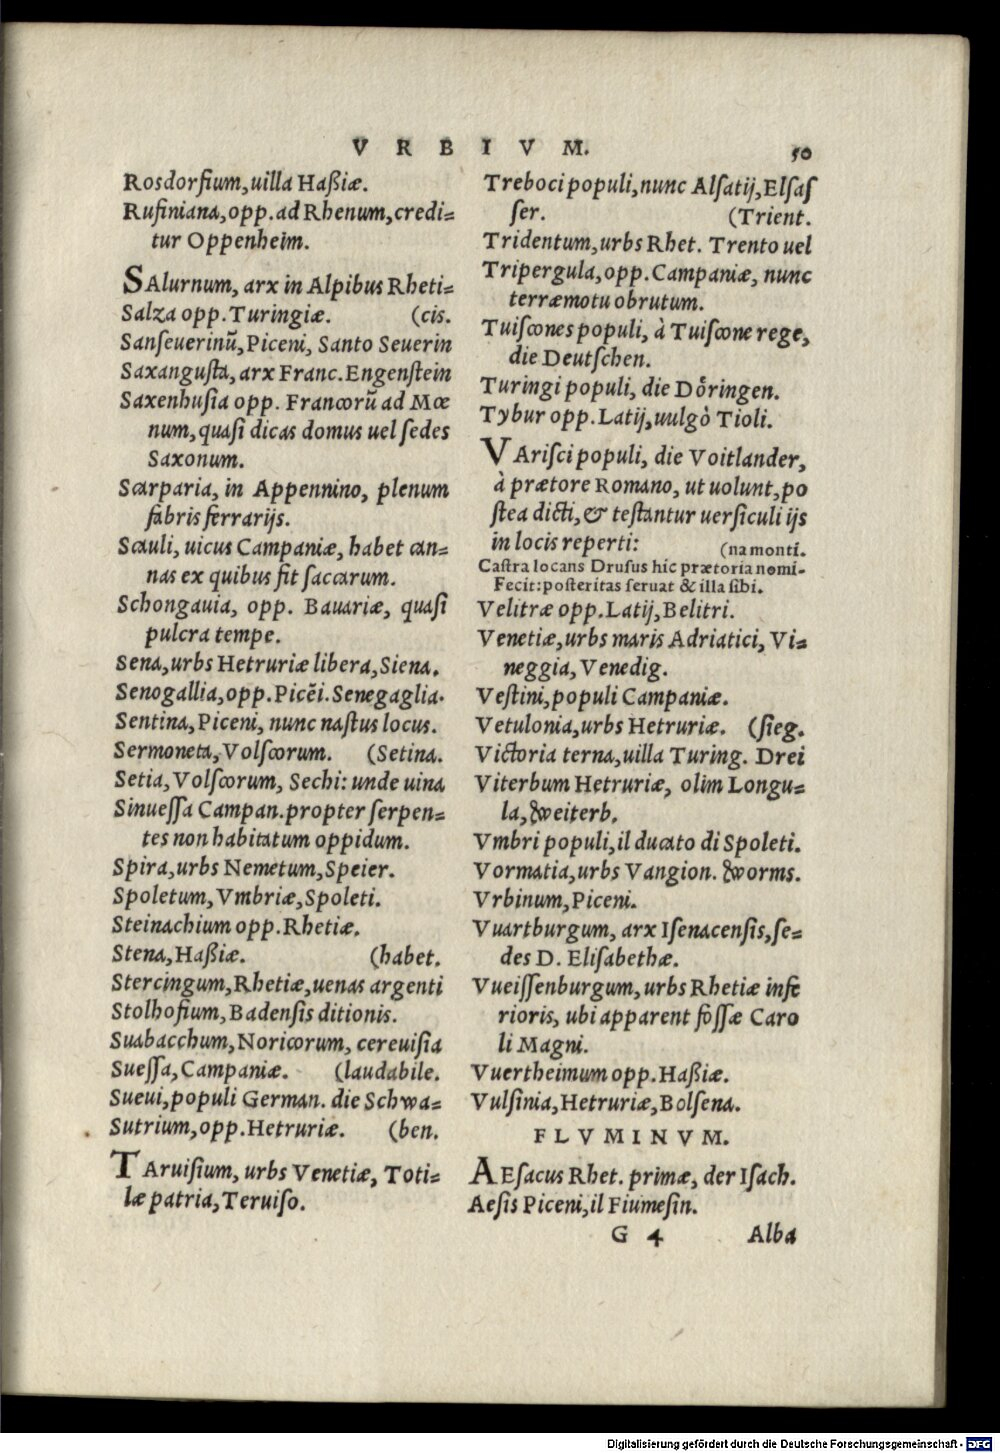 VRBIVM. 50
Rosdorfium, uilla Haßiæ.
Rufiniana, opp. ad Rhenum, credi=
tur Oppenheim.
SAlurnum, arx in Alpibus Rheti=
Salza opp. Turingiæ. (cis.
Sanseuerinũ, Piceni, Santo Seuerin
Saxangusta, arx Franc. Engenstein
Saxenhusia opp. Francorũ ad Mœ
num, quasi dicas domus uel sedes
Saxonum.
Scarparia, in Appennino, plenum
fabris ferrarijs.
Scauli, uicus Campaniæ, habet can=
nas ex quibus fit saccarum.
Schongauia, opp. Bauariæ, quasi
pulcra tempe.
Sena, urbs Hetruriæ libera, Siena.
Senogallia, opp. Picẽi. Senegaglia.
Sentina, Piceni, nunc nastus locus.
Sermoneta, Volscorum. (Setina.
Setia, Volscorum, Sechi: unde uina
Sinuessa Campan. propter serpen=
tes non habitatum oppidum.
Spira, urbs Nemetum, Speier.
Spoletum, Vmbriæ, Spoleti.
Steinachium opp. Rhetiæ.
Stena, Haßiæ. (habet.
Stercingum, Rhetiæ, uenas argenti
Stolhofium, Badensis ditionis.
Suabacchum, Noricorum, cereuisia
Suessa, Campaniæ. (laudabile.
Sueui, populi German. die Schwa=
Sutrium, opp. Hetruriæ. (ben.
TAruisium, urbs Venetiæ, Toti=
læ patria, Teruiso.
Treboci populi, nunc Alsatij, Elsas
ser. (Trient.
Tridentum, urbs Rhet. Trento uel
Tripergula, opp. Campaniæ, nunc
terræmotu obrutum.
Tuiscones populi, à Tuiscone rege,
die Deutschen.
Turingi populi, die Döringen.
Tybur opp. Latij, uulgò Tioli.
VArisci populi, die Voitlander,
à prætore Romano, ut uolunt, po
stea dicti, & testantur uersiculi ijs
in locis reperti: (na monti.
Castra locans Drusus hic prætoria nomi-
Fecit: posteritas seruat & illa sibi.
Velitræ opp. Latij, Belitri.
Venetiæ, urbs maris Adriatici, Vi=
neggia, Venedig.
Vestini, populi Campaniæ.
Vetulonia, urbs Hetruriæ. (sieg.
Victoria terna, uilla Turing. Drei
Viterbum Hetruriæ, olim Longu=
la, Weiterb.
Vmbri populi, il ducato di Spoleti.
Vormatia, urbs Vangion. Worms.
Vrbinum, Piceni.
Vuartburgum, arx Isenacensis, se=
des D. Elisabethæ.
Vueissenburgum, urbs Rhetiæ infe
rioris, ubi apparent fossæ Caro
li Magni.
Vuertheimum opp. Haßiæ.
Vulsinia, Hetruriæ, Bolsena.
FLVMINVM.
AEsacus Rhet. primæ, der Isach.
Aesis Piceni, il Fiumesin.
G 4 Alba
Digitalisierung gefördert durch die Deutsche Forschungsgemeinschaft - DFG